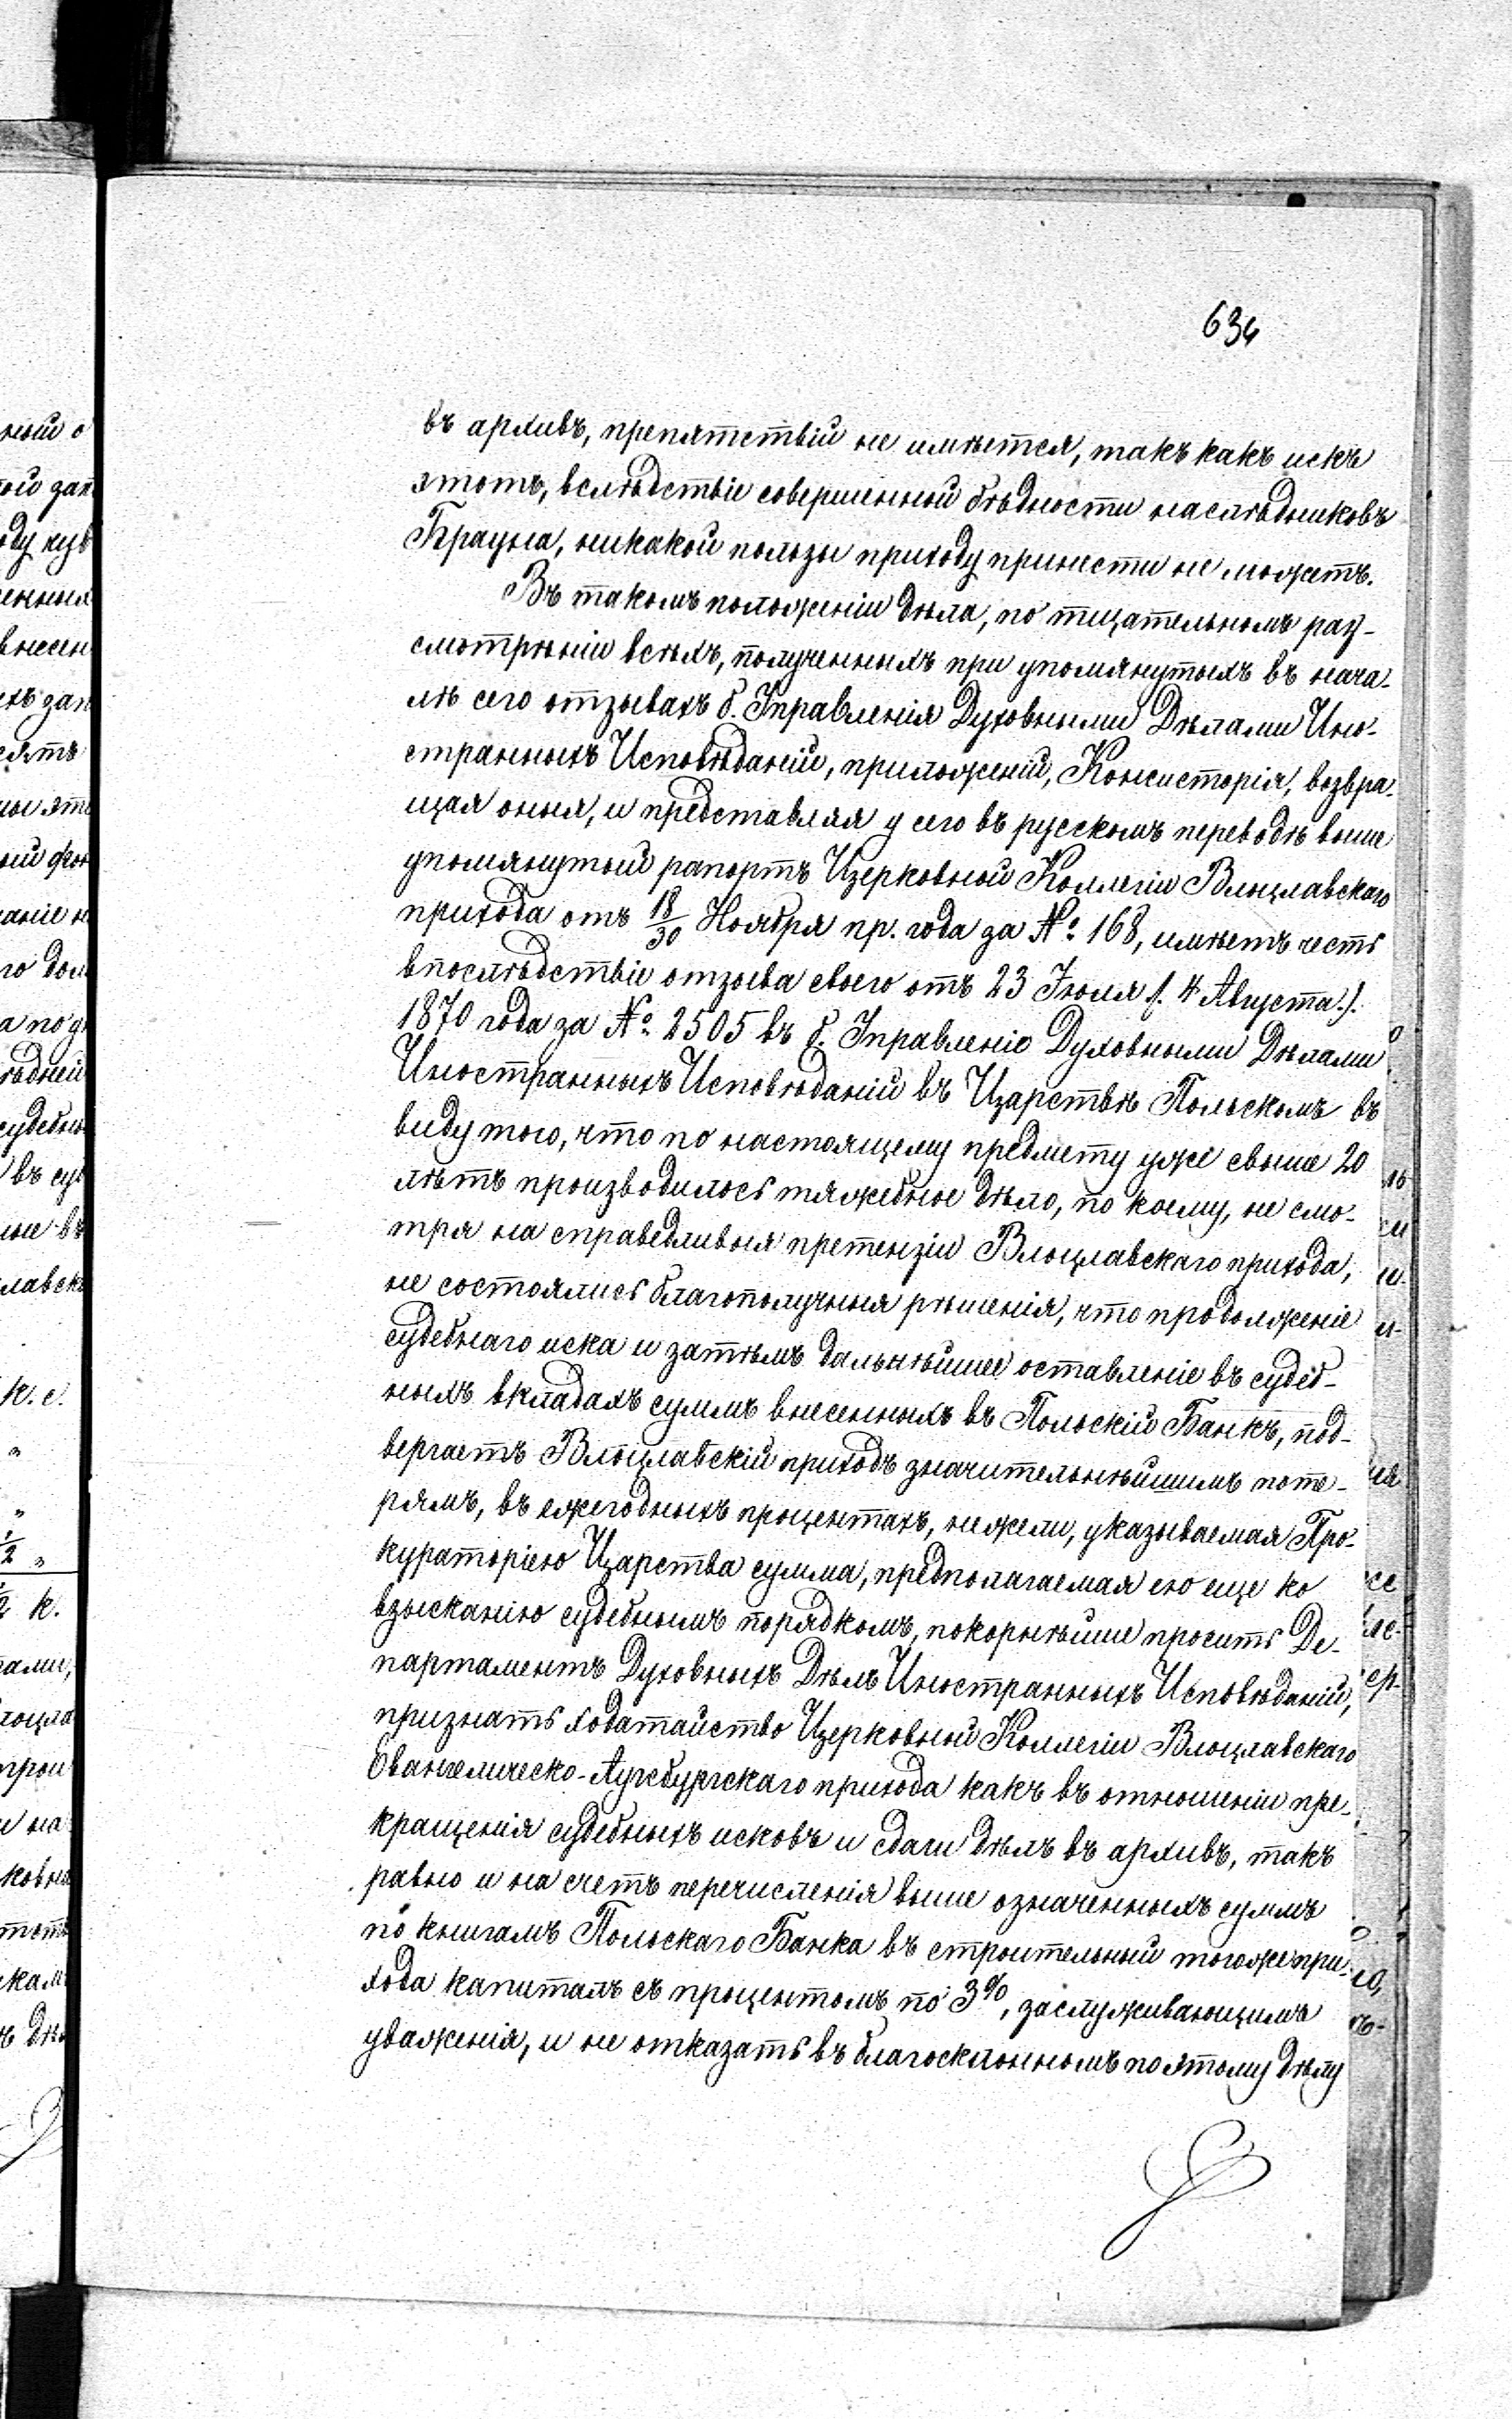 634
въ архивъ, препятствій не имѣется, такъ какъ искъ
этотъ, вслѣдствіе совершенной бѣдности наслѣдниковъ
Брауна, никакой пользы приходу принести не можетъ.
Въ такомъ положеніи дѣла, по тщательномъ раз-
смотрѣніи всѣхъ, полученныхъ при упомянутыхъ въ нача-
лѣ сего отзывахъ б. Управленія Духовными Дѣлами Ино-
странныхъ Исповѣданій, приложеній, Консисторія, возвра-
щая оныя, и представляя у сего въ русскомъ переводѣ выше
упомянутый рапортъ Церковной Коллегіи Влоцлавскаго
прихода отъ 18/30 Ноября пр. года за № 168, имѣетъ честь
впослѣдствіе отзыва своего отъ 23 Іюля /. 4 Августа ./.
1870 года за № 2505 въ б. Управленіе Духовными Дѣлами
Иностранныхъ Исповѣданій въ Царствѣ Польскомъ въ
виду того, что по настоящему предмету уже свыше 20
лѣтъ производилось тяжебное дѣло, по коему, не смо-
тря на справедливыя претензіи Влоцлавскаго прихода,
не состоялись благополучныя рѣшенія, что продолженіе
судебнаго иска и затѣмъ дальнѣйшее оставленіе въ судеб-
ныхъ вкладахъ суммъ внесенныхъ въ Польскій Банкъ, под-
вергаетъ Влоцлавскій приходъ значительнѣйшимъ поте-
рямъ, въ ежегодныхъ процентахъ, нежели, указываемая Про-
кураторіею Царства сумма, предполагаемая ею еще ко
взысканію судебнымъ порядкомъ, покорнѣйше просить Де-
партаментъ Духовныхъ Дѣлъ Иностранныхъ Исповѣданій,
признать ходатайство Церковной Коллегіи Влоцлавскаго
Евангелическо-Аугсбургскаго прихода какъ въ отношеніи пре-
кращенія судебныхъ исковъ и сдачи дѣлъ въ архивъ, такъ
равно и на счетъ перечисленія выше означенныхъ суммъ
по книгамъ Польскаго Банка въ строительный тогоже при-
хода капиталъ съ процентомъ по 3%, заслуживающимъ
уваженія, и не отказать въ благосклонномъ по этому дѣлу